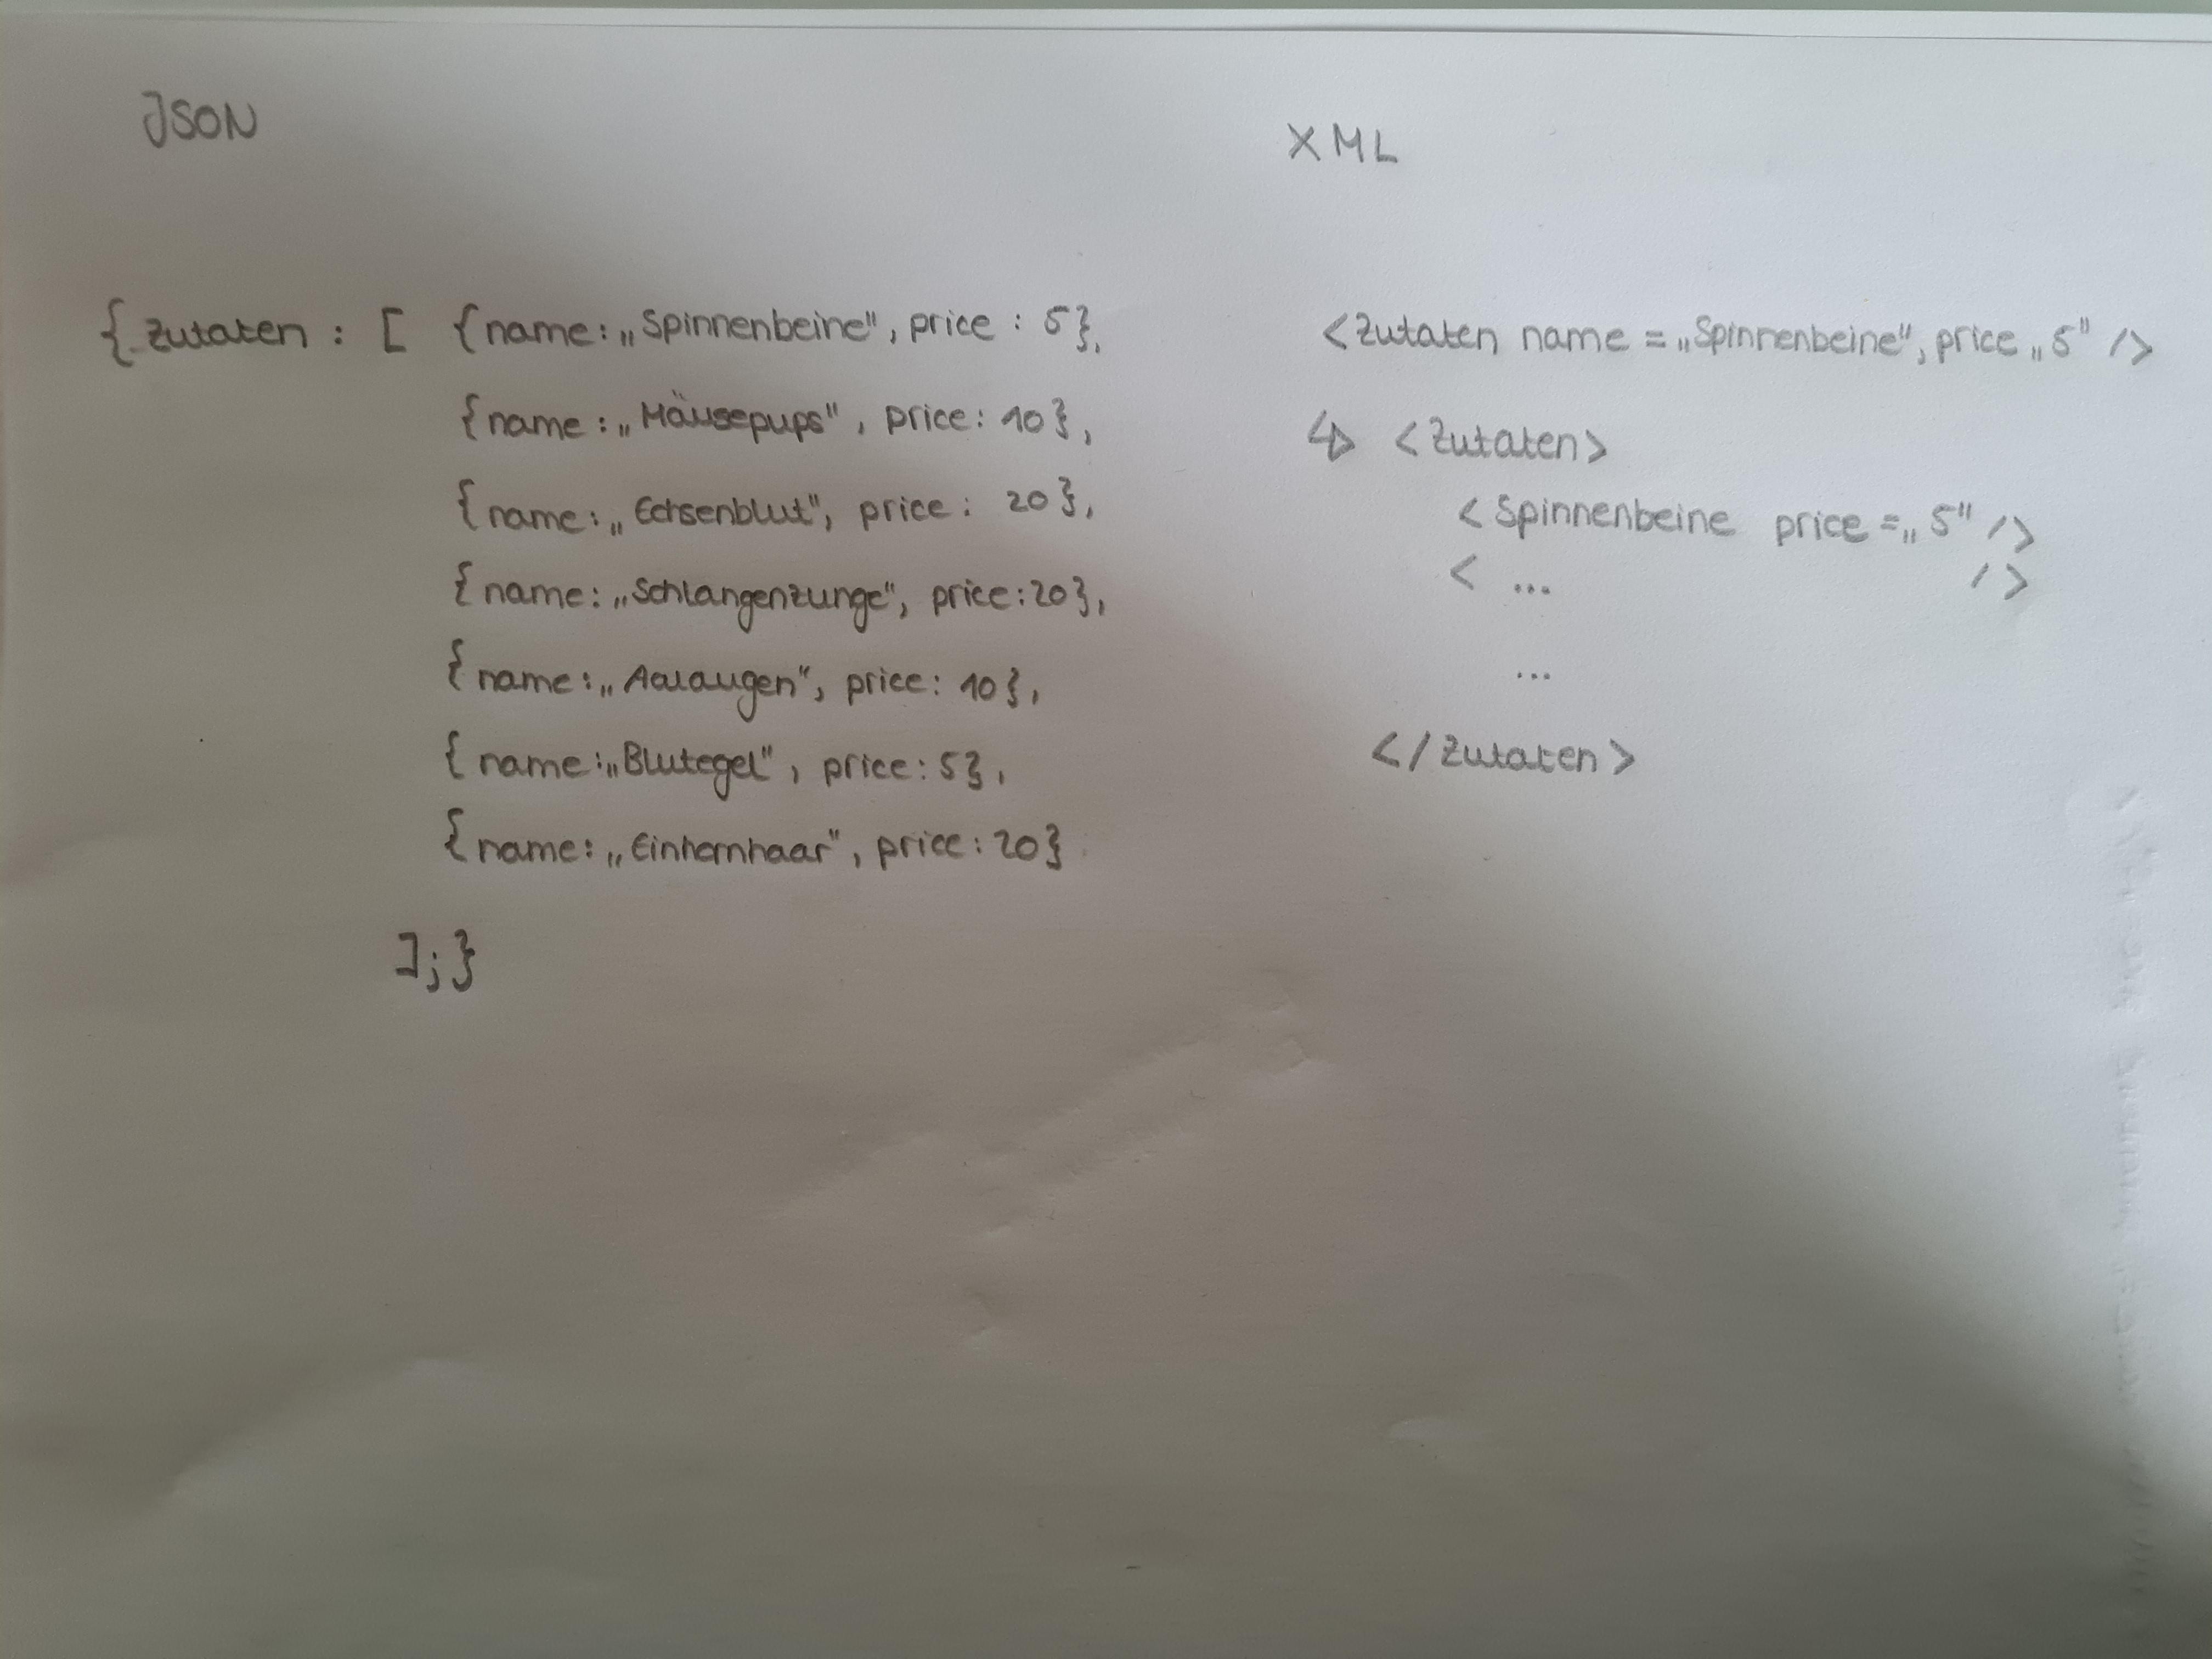 JSON
{ Zutaten : [ {name: „Spinnenbeine", price : 5},
{name : „Mäusepups", price: 10},
{name: „Echsenblut", price: 20},
{name: „Schlangenzunge", price: 20},
{name: „Aalaugen", price: 10},
{name: „Blutegel", price: 5},
{name: „Einhornhaar", price: 20}
];}
XML
<Zutaten name = „Spinnenbeine", price „5" />
↳ <Zutaten>
<Spinnenbeine price = „5" />
< ... />
...
</Zutaten>